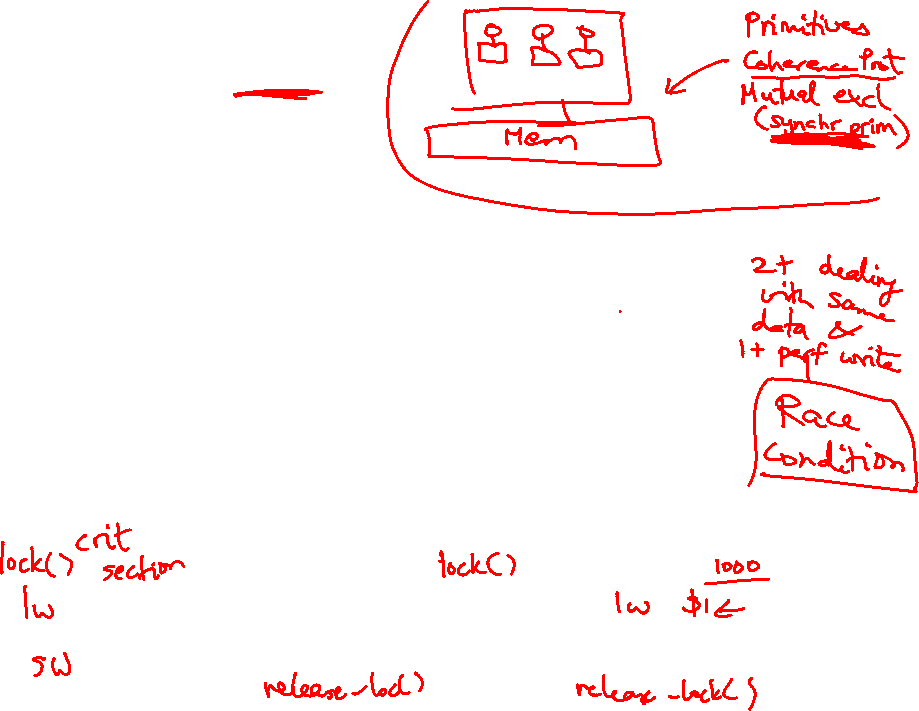 Primitives
Coherence Prot
Mutual excl
(synchr prim)
Mem
2+ dealing
with same
data &
1+ perf write
Race
Condition
lock() crit
section
lock()
1000
lw
lw $1←
sw
release-lock()